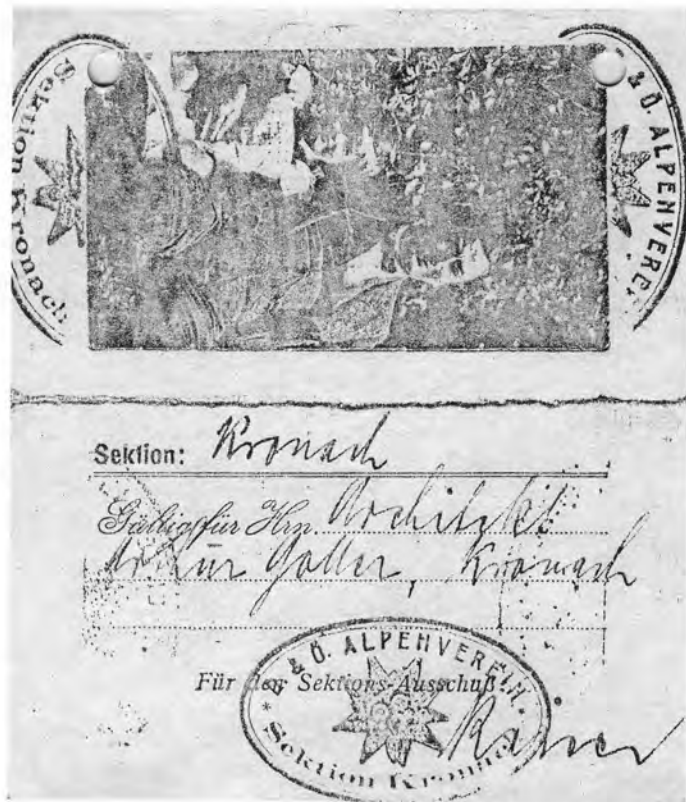 Sektion Kronach
& Ö. ALPENVEREI
Sektion: Kronach
Gültig für Hrn. Architekt
Artur Goller, Kronach
Für den Sektions-Ausschuß:
& Ö. ALPENVEREIN
* Sektion Kronach *